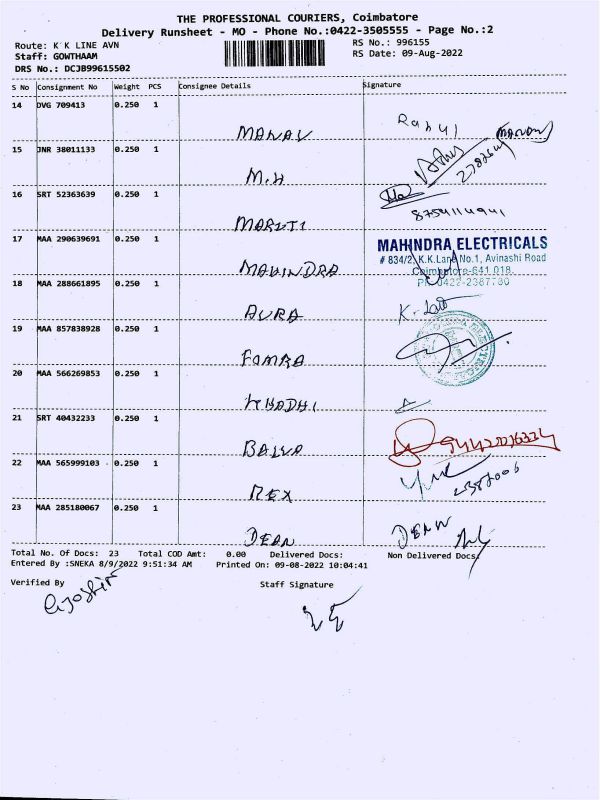 THE PROFESSIONAL COURIERS, Coimbatore
Delivery Runsheet - MO - Phone No.:0422-3505555 - Page No.:2
Route: K K LINE AVN
RS No.: 996155
Staff: GOWTHAAM
RS Date: 09-Aug-2022
DRS No.: DCJB99615502
S No Consignment No Weight PCS Consignee Details Signature
14 DVG 709413 0.250 1
MANAV
Rahul
15 JNR 38011133 0.250 1
M.H
16 SRT 52363639 0.250 1
MARUTI
8754114941
17 MAA 290639691 0.250 1
MAHINDRA
MAHINDRA ELECTRICALS
# 834/2, K.K.Lane No.1, Avinashi Road
Coimbatore-641 018.
PH:0422-2367730
18 MAA 288661895 0.250 1
AURA
19 MAA 857838928 0.250 1
FOMRA
20 MAA 566269853 0.250 1
21 SRT 40432233 0.250 1
22 MAA 565999103 0.250 1
REX
23 MAA 285180067 0.250 1
DEAN
Total No. Of Docs: 23 Total COD Amt: 0.00 Delivered Docs: Non Delivered Docs:
Entered By :SNEKA 8/9/2022 9:51:34 AM Printed On: 09-08-2022 10:04:41
Verified By Staff Signature